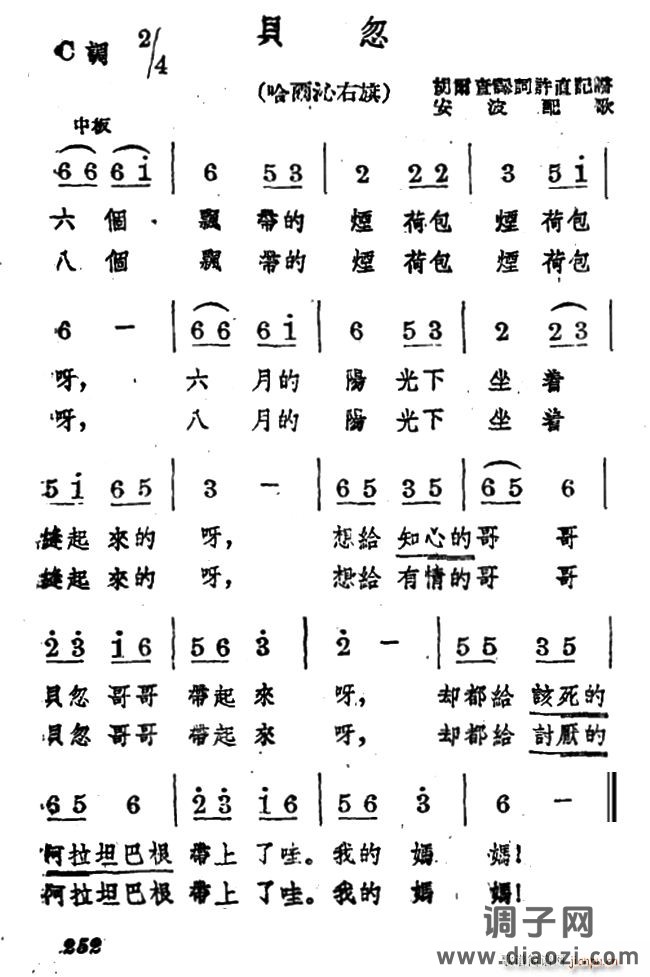 貝忽
C調 2/4
(哈爾沁右旗)
胡爾查譯詞 許直記譜
安波配歌
中板
6 6 6 i | 6 5 3 | 2 2 2 | 3 5 i |
六個飄帶的煙荷包煙荷包
八個飄帶的煙荷包煙荷包
6 — | 6 6 6 i | 6 5 3 | 2 2 3 |
呀，六月的陽光下坐着
呀，八月的陽光下坐着
5 i 6 5 | 3 — | 6 5 3 5 | 6 5 6 |
縫起來的呀，想給知心的哥哥
縫起來的呀，想給有情的哥哥
2̇ 3̇ i 6 | 5 6 3̇ | 2̇ — | 5 5 3 5 |
貝忽哥哥帶起來呀，却都給該死的
貝忽哥哥帶起來呀，却都給討厭的
6 5 6 | 2̇ 3̇ i 6 | 5 6 3̇ | 6 — ‖
阿拉坦巴根帶上了哇。我的媽媽！
阿拉坦巴根帶上了哇。我的媽媽！
252
调子网
www.diaozi.com